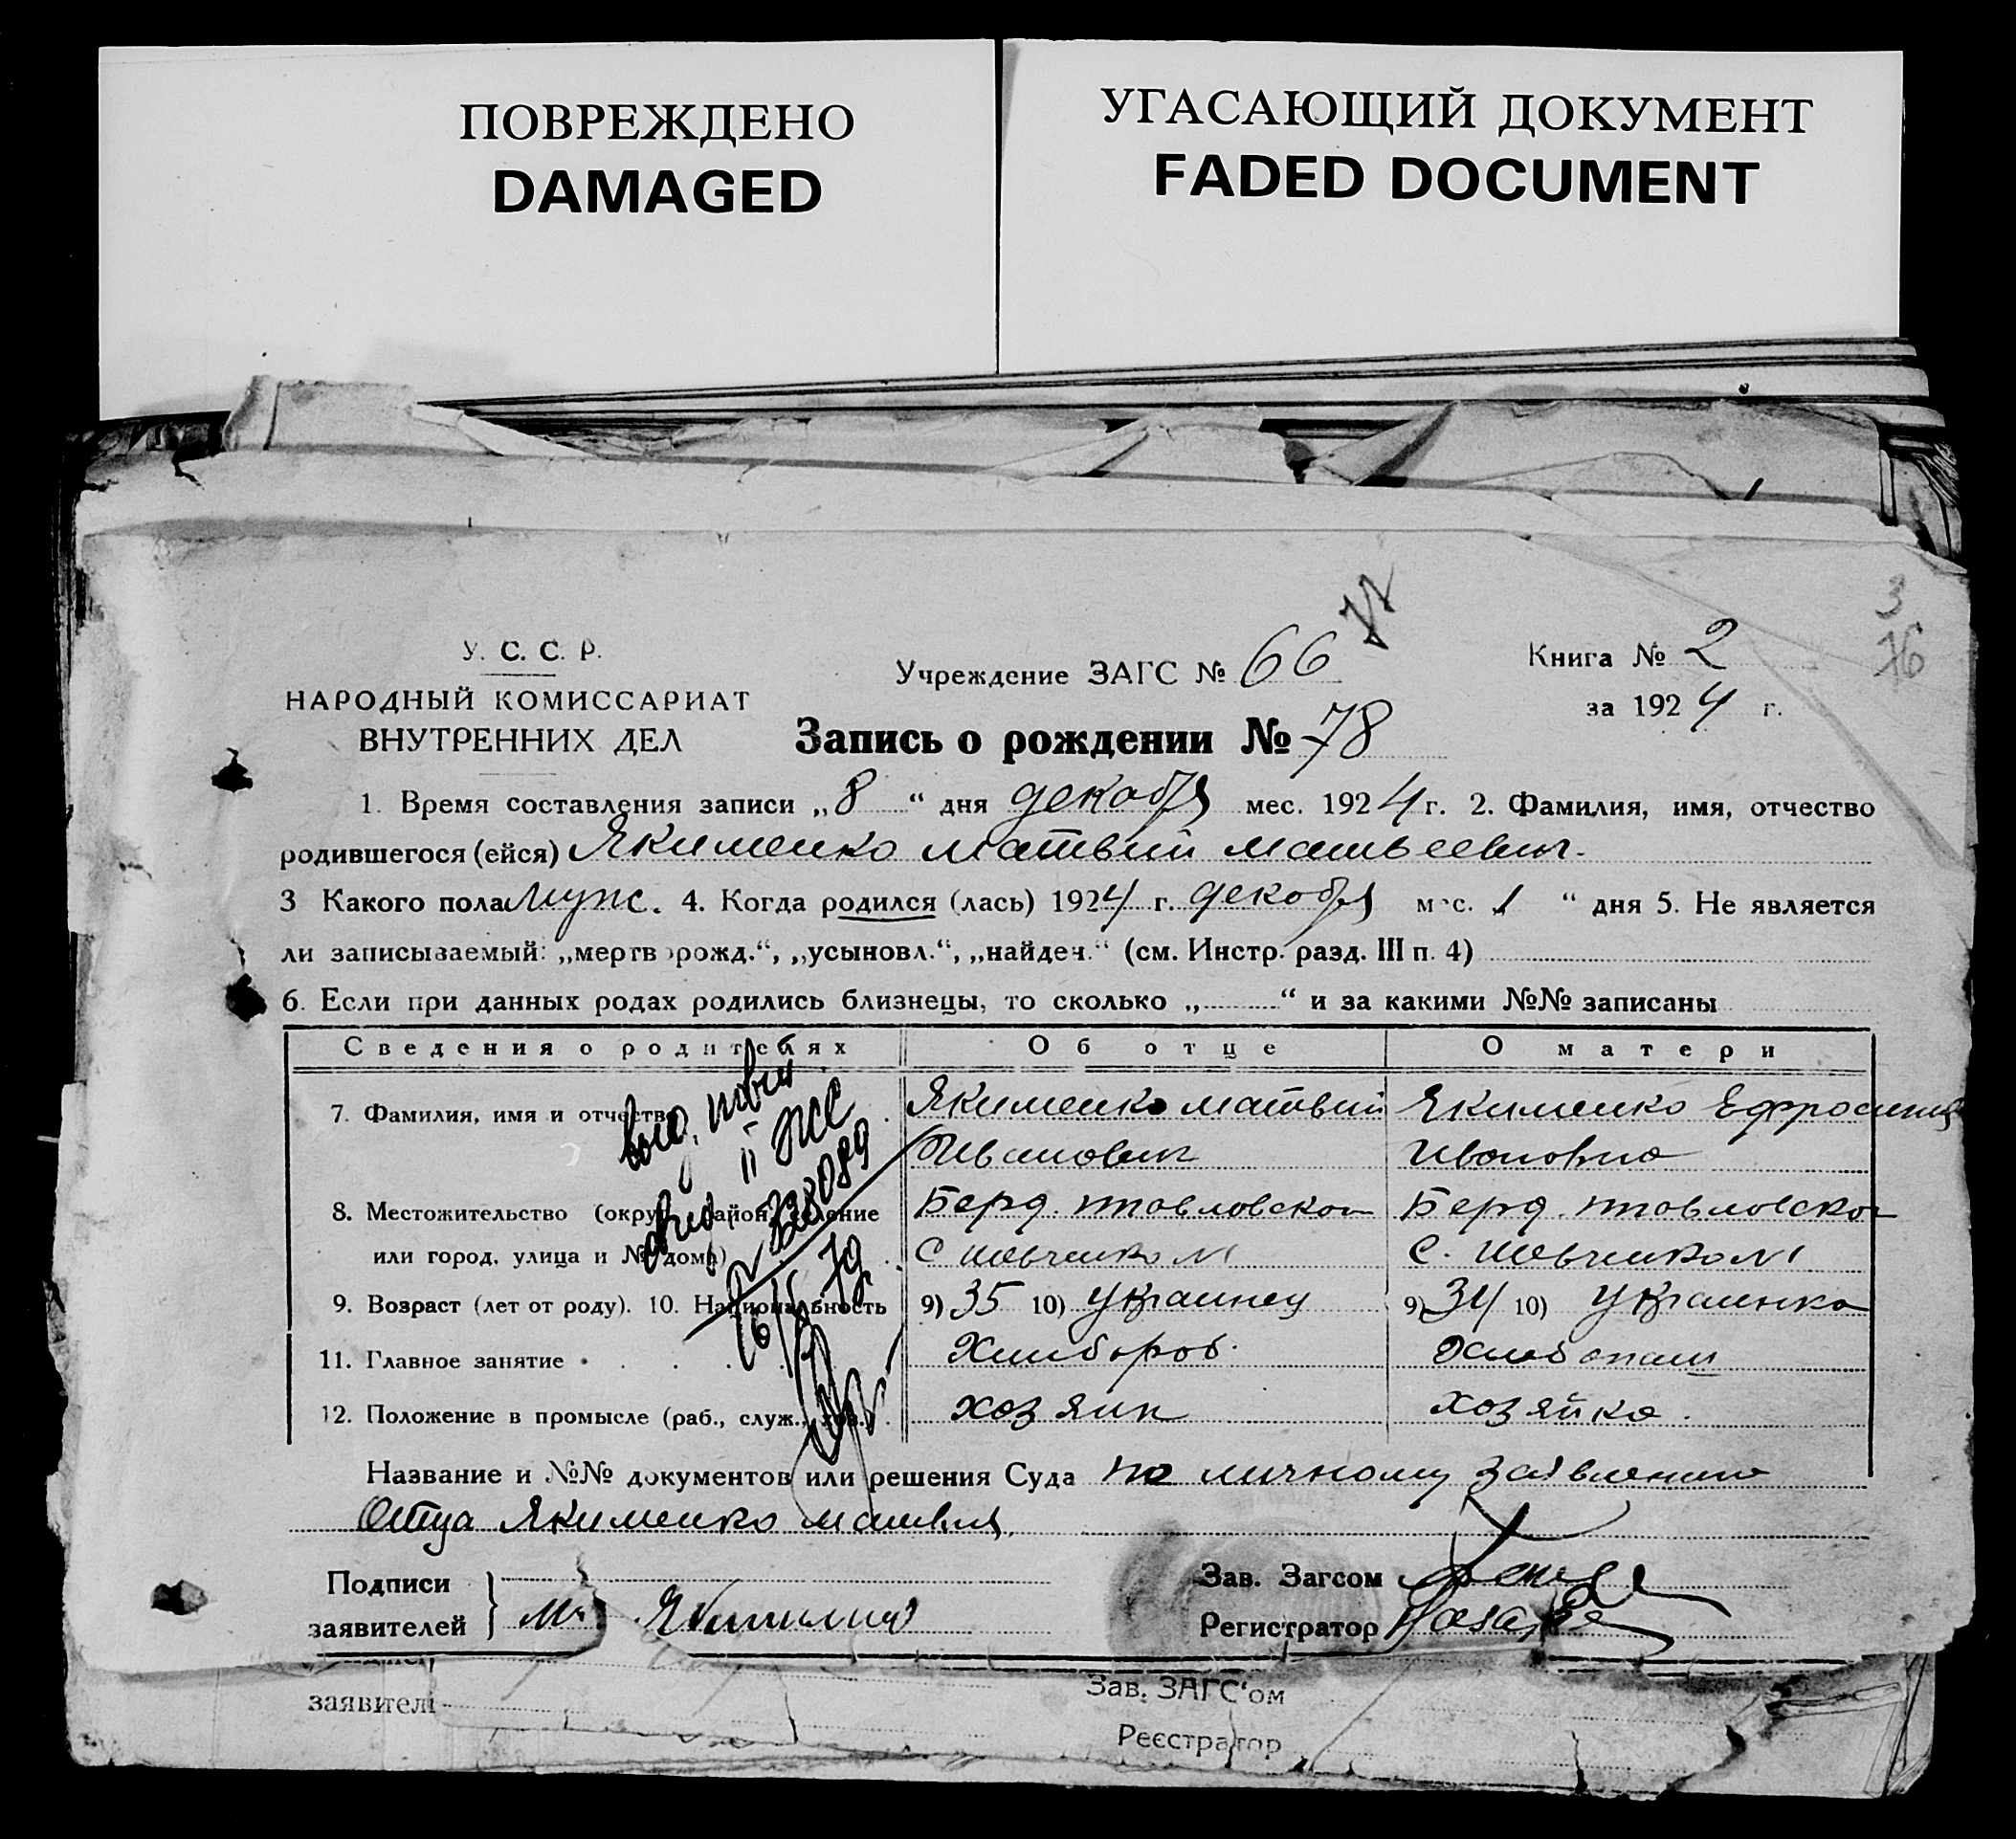 ПОВРЕЖДЕНО
DAMAGED
УГАСАЮЩИЙ ДОКУМЕНТ
FADED DOCUMENT
3
76
У. С. С. Р.
НАРОДНЫЙ КОМИССАРИАТ
ВНУТРЕННИХ ДЕЛ
Учреждение ЗАГС № 66
Книга № 2
за 1924 г.
Запись о рождении № 78
1. Время составления записи „8“ дня декабря мес. 1924 г. 2. Фамилия, имя, отчество
родившегося (ейся) Якименко Матвий Матвеевич.
3 Какого пола муж. 4. Когда родился (лась) 1924 г. декабря мес. 1 “ дня 5. Не является
ли записываемый: „мертворожд.“, „усыновл.“, „найден.“ (см. Инстр. разд. III п. 4)
6. Если при данных родах родились близнецы, то сколько „ “ и за какими №№ записаны
Сведения о родителях Об отце О матери
7. Фамилия, имя и отчество Якименко Матвий Якименко Ефросиния
Иванович Ивановна
8. Местожительство (округ, район, селение Берд. Павловской Берд. Павловской
или город, улица и № дома) с. Шевченко №1 с. Шевченко №1
9. Возраст (лет от роду). 10. Национальность 9) 35 10) Украинец 9) 34 10) Украинка
11. Главное занятие Хлибороб.
12. Положение в промысле (раб., служ., хоз.) хозяин хозяйка.
Название и №№ документов или решения Суда по личному заявлению
Отца Якименко Матвия.
Подписи
заявителей
Зав. Загсом
Регистратор
заявителі
Зав. ЗАГС'ом
Реєстратор